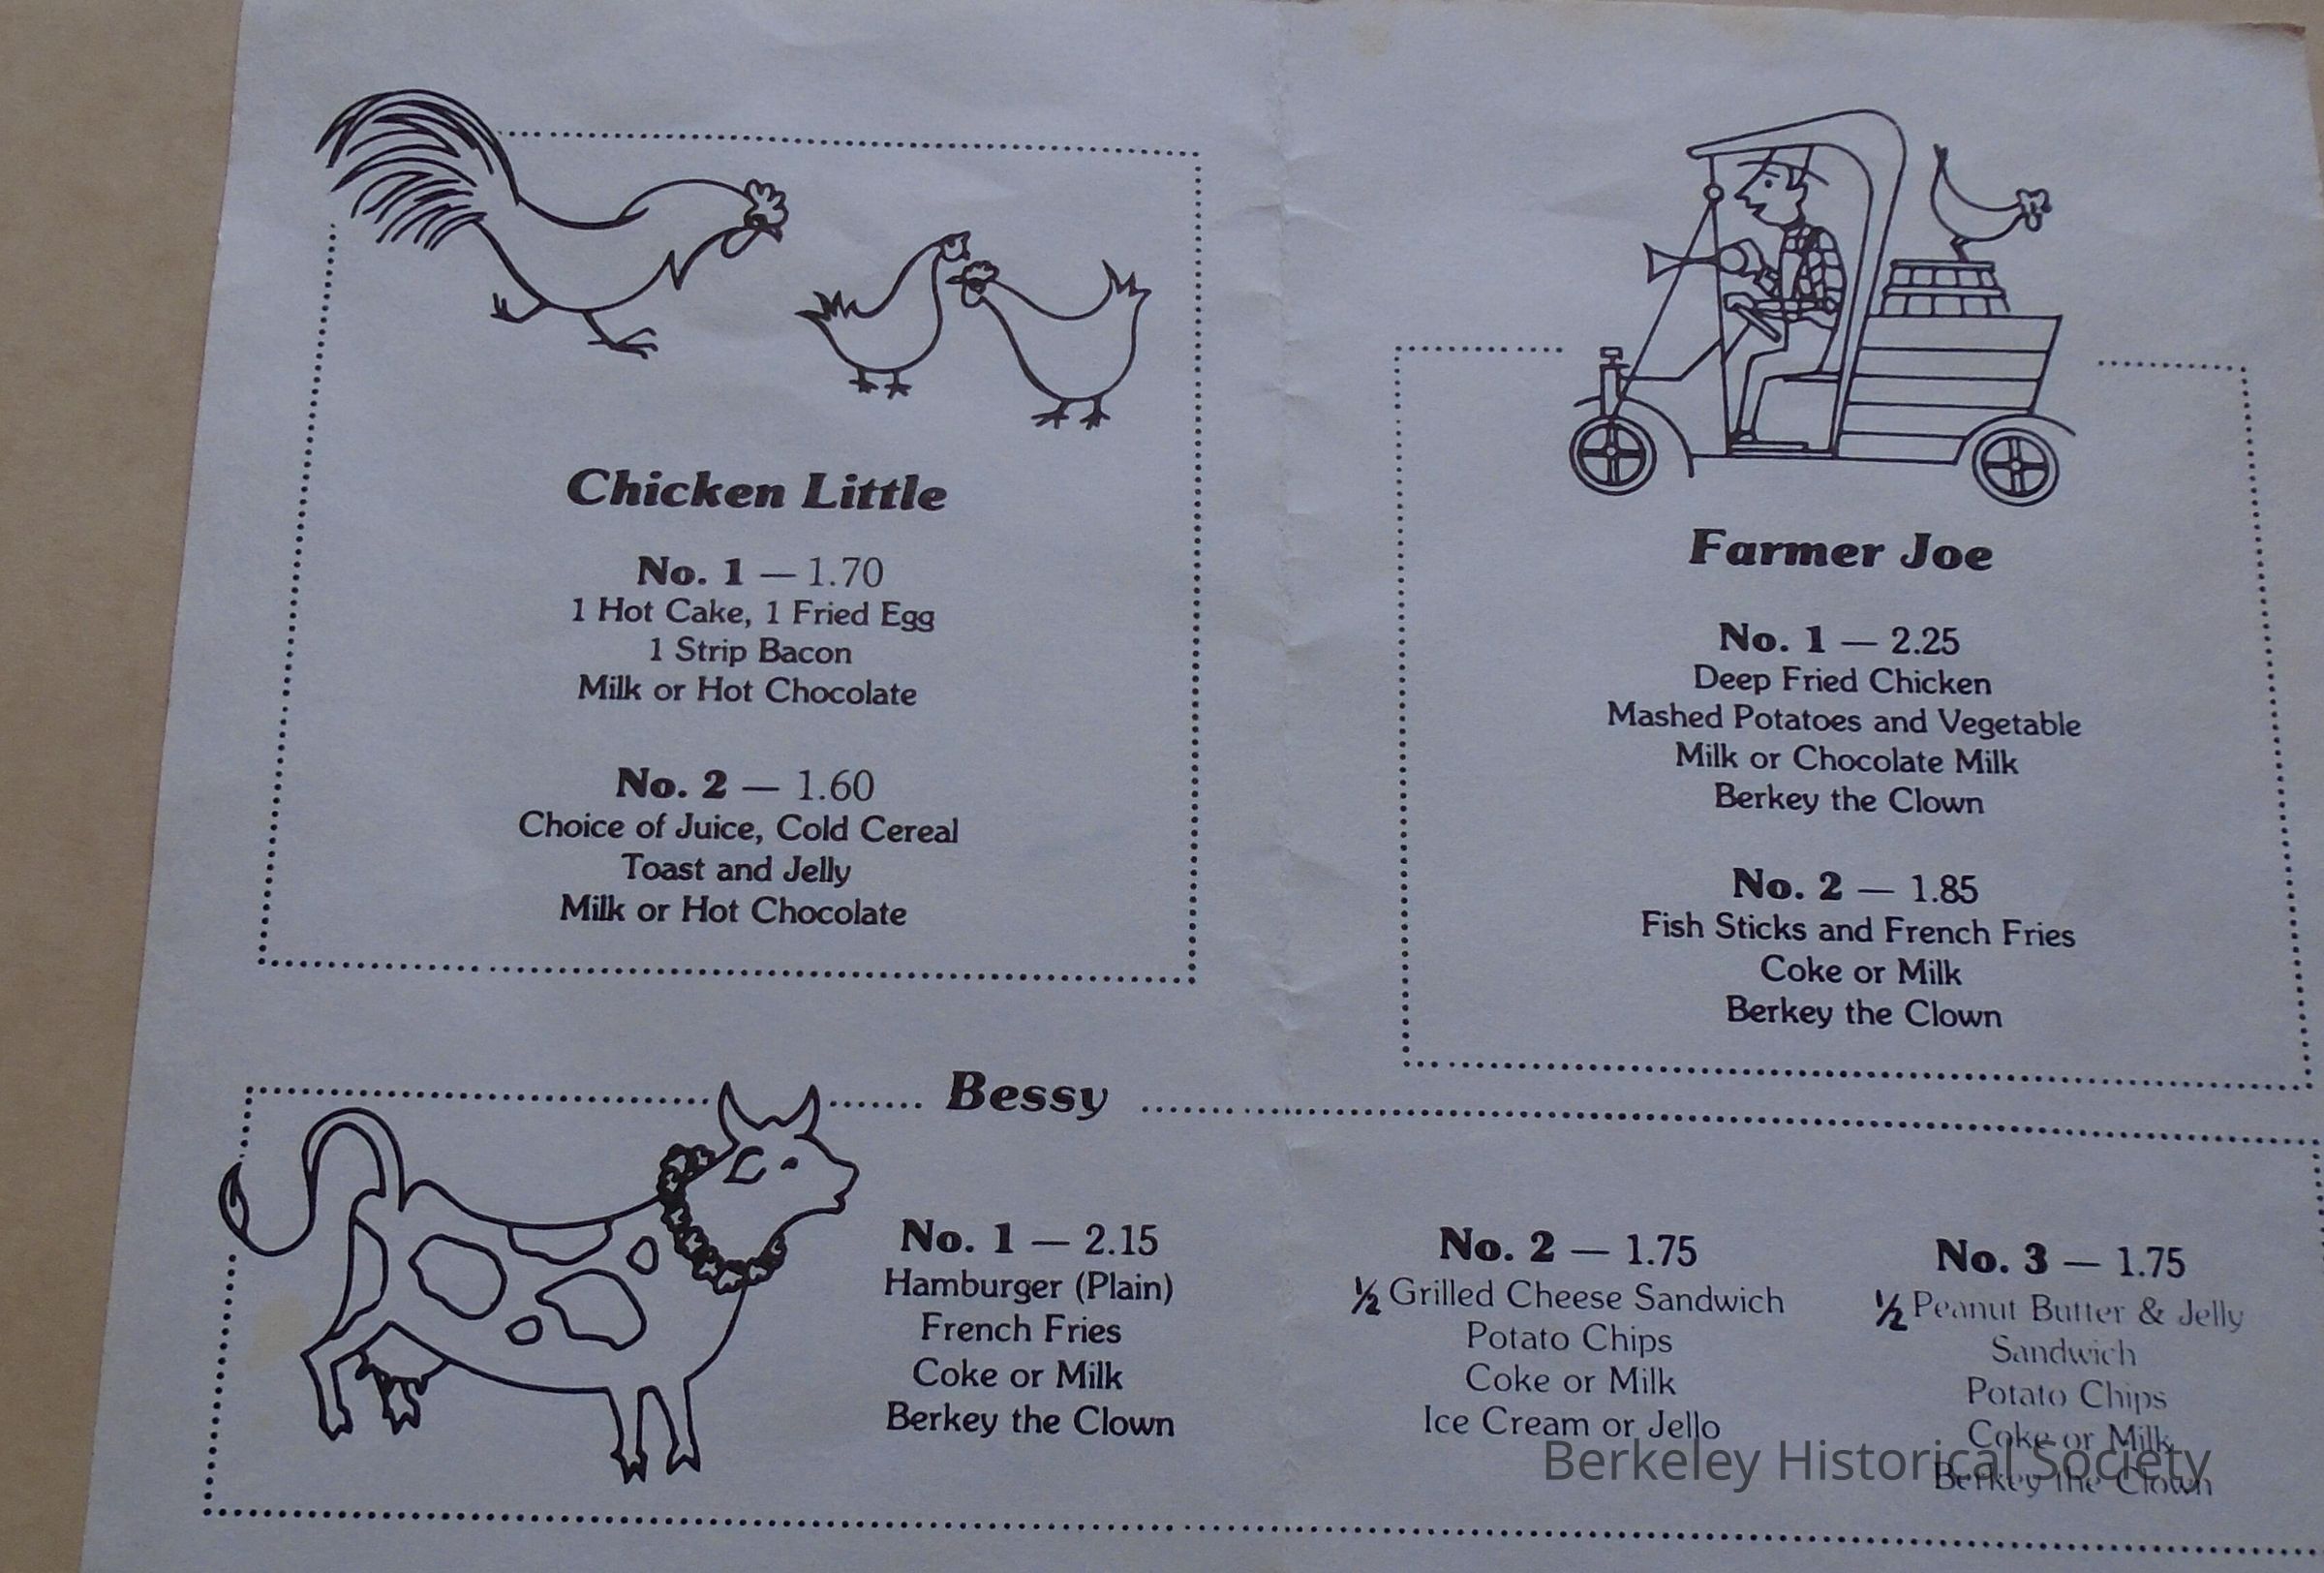 Chicken Little
No. 1 — 1.70
1 Hot Cake, 1 Fried Egg
1 Strip Bacon
Milk or Hot Chocolate
No. 2 — 1.60
Choice of Juice, Cold Cereal
Toast and Jelly
Milk or Hot Chocolate
Farmer Joe
No. 1 — 2.25
Deep Fried Chicken
Mashed Potatoes and Vegetable
Milk or Chocolate Milk
Berkey the Clown
No. 2 — 1.85
Fish Sticks and French Fries
Coke or Milk
Berkey the Clown
Bessy
No. 1 — 2.15
Hamburger (Plain)
French Fries
Coke or Milk
Berkey the Clown
No. 2 — 1.75
½ Grilled Cheese Sandwich
Potato Chips
Coke or Milk
Ice Cream or Jello
No. 3 — 1.75
½ Peanut Butter & Jelly
Sandwich
Potato Chips
Coke or Milk
Berkey the Clown
Berkeley Historical Society